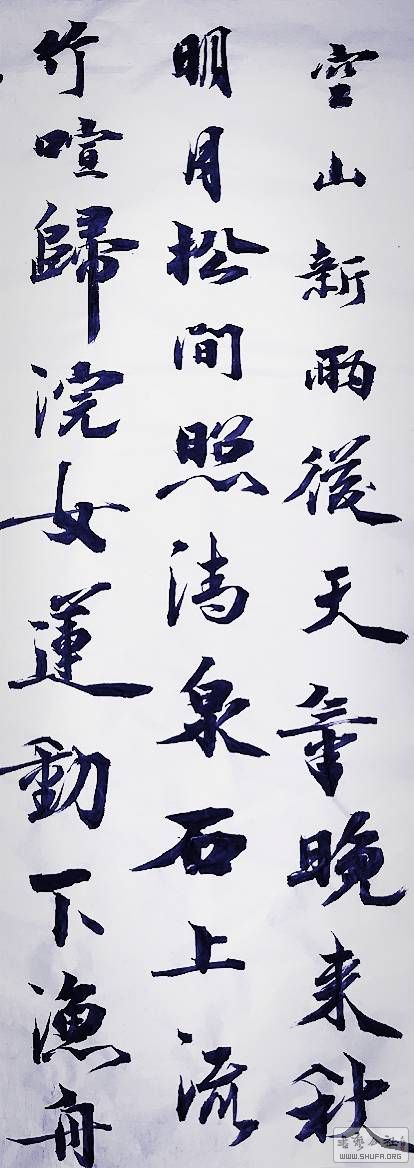 空山新雨後天氣晚来秋
明月松間照清泉石上流
竹喧歸浣女蓮動下漁舟
WWW.SHUFA.ORG